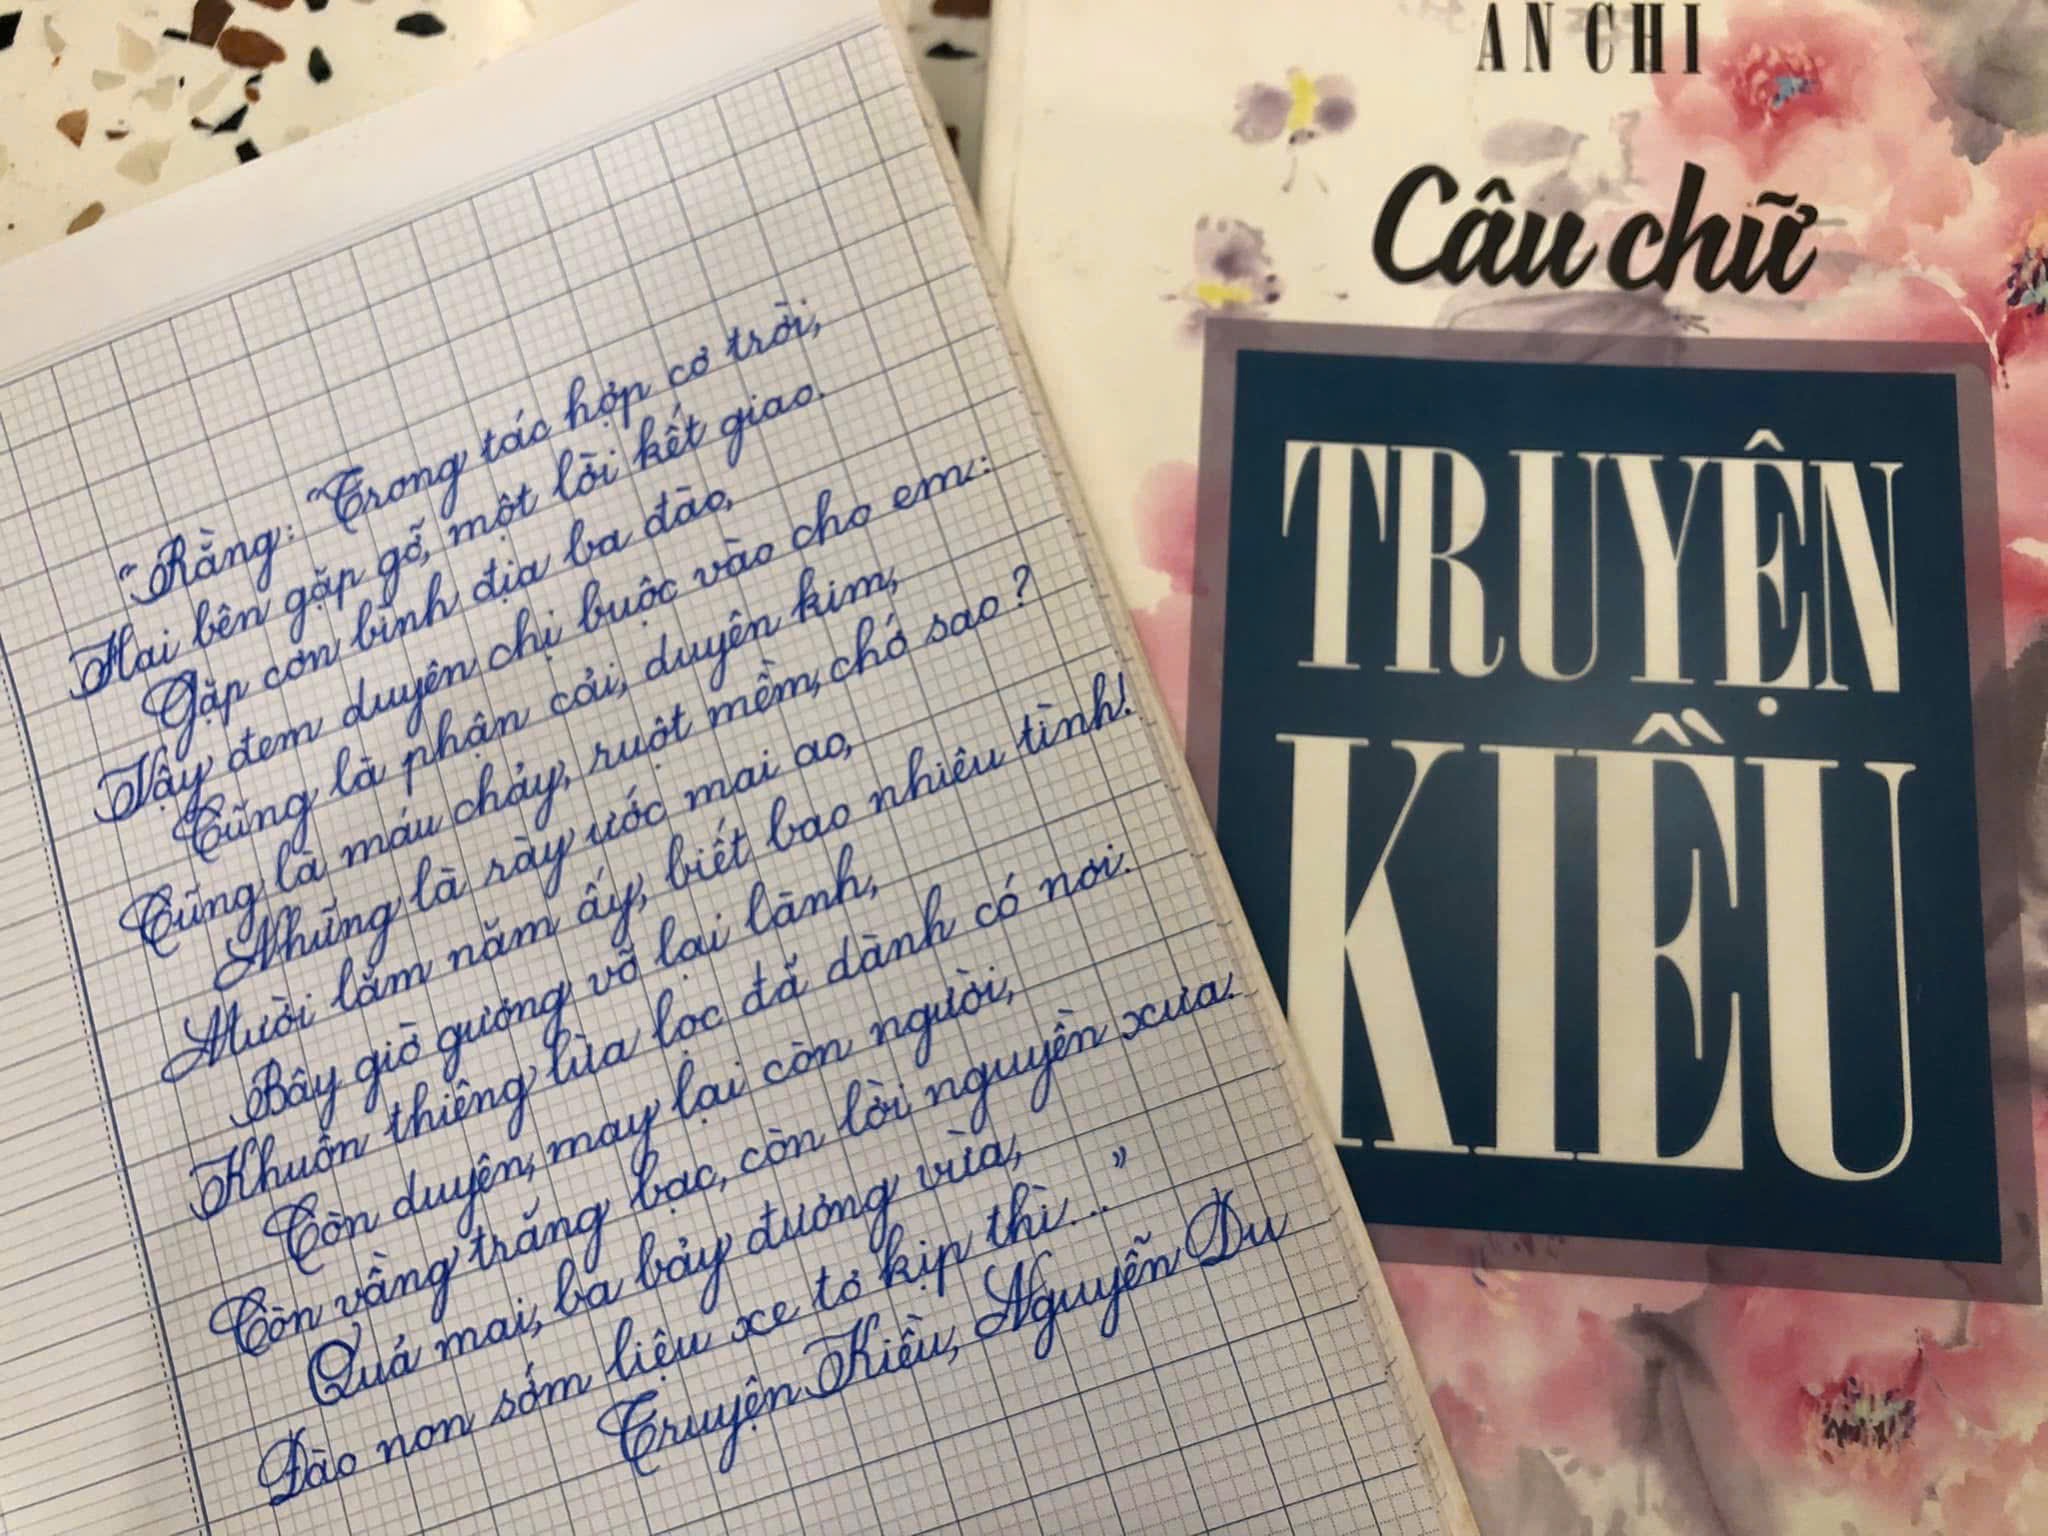 "Rằng: "Trong tác hợp cơ trời,
Hai bên gặp gỡ, một lời kết giao.
Gặp cơn bình địa ba đào,
Vậy đem duyên chị buộc vào cho em:
Cũng là phận cải, duyên kim,
Cũng là máu chảy, ruột mềm, chớ sao?
Những là rày ước mai ao,
Mười lăm năm ấy, biết bao nhiêu tình!
Bây giờ gương vỡ lại lành,
Khuôn thiêng lừa lọc đã dành có nơi.
Còn duyên, may lại còn người,
Còn vầng trăng bạc, còn lời nguyền xưa.
Quả mai, ba bảy đương vừa,
Đào non sớm liệu xe tơ kịp thì..."
Truyện Kiều, Nguyễn Du
AN CHI
Câu chữ
TRUYỆN
KIỀU